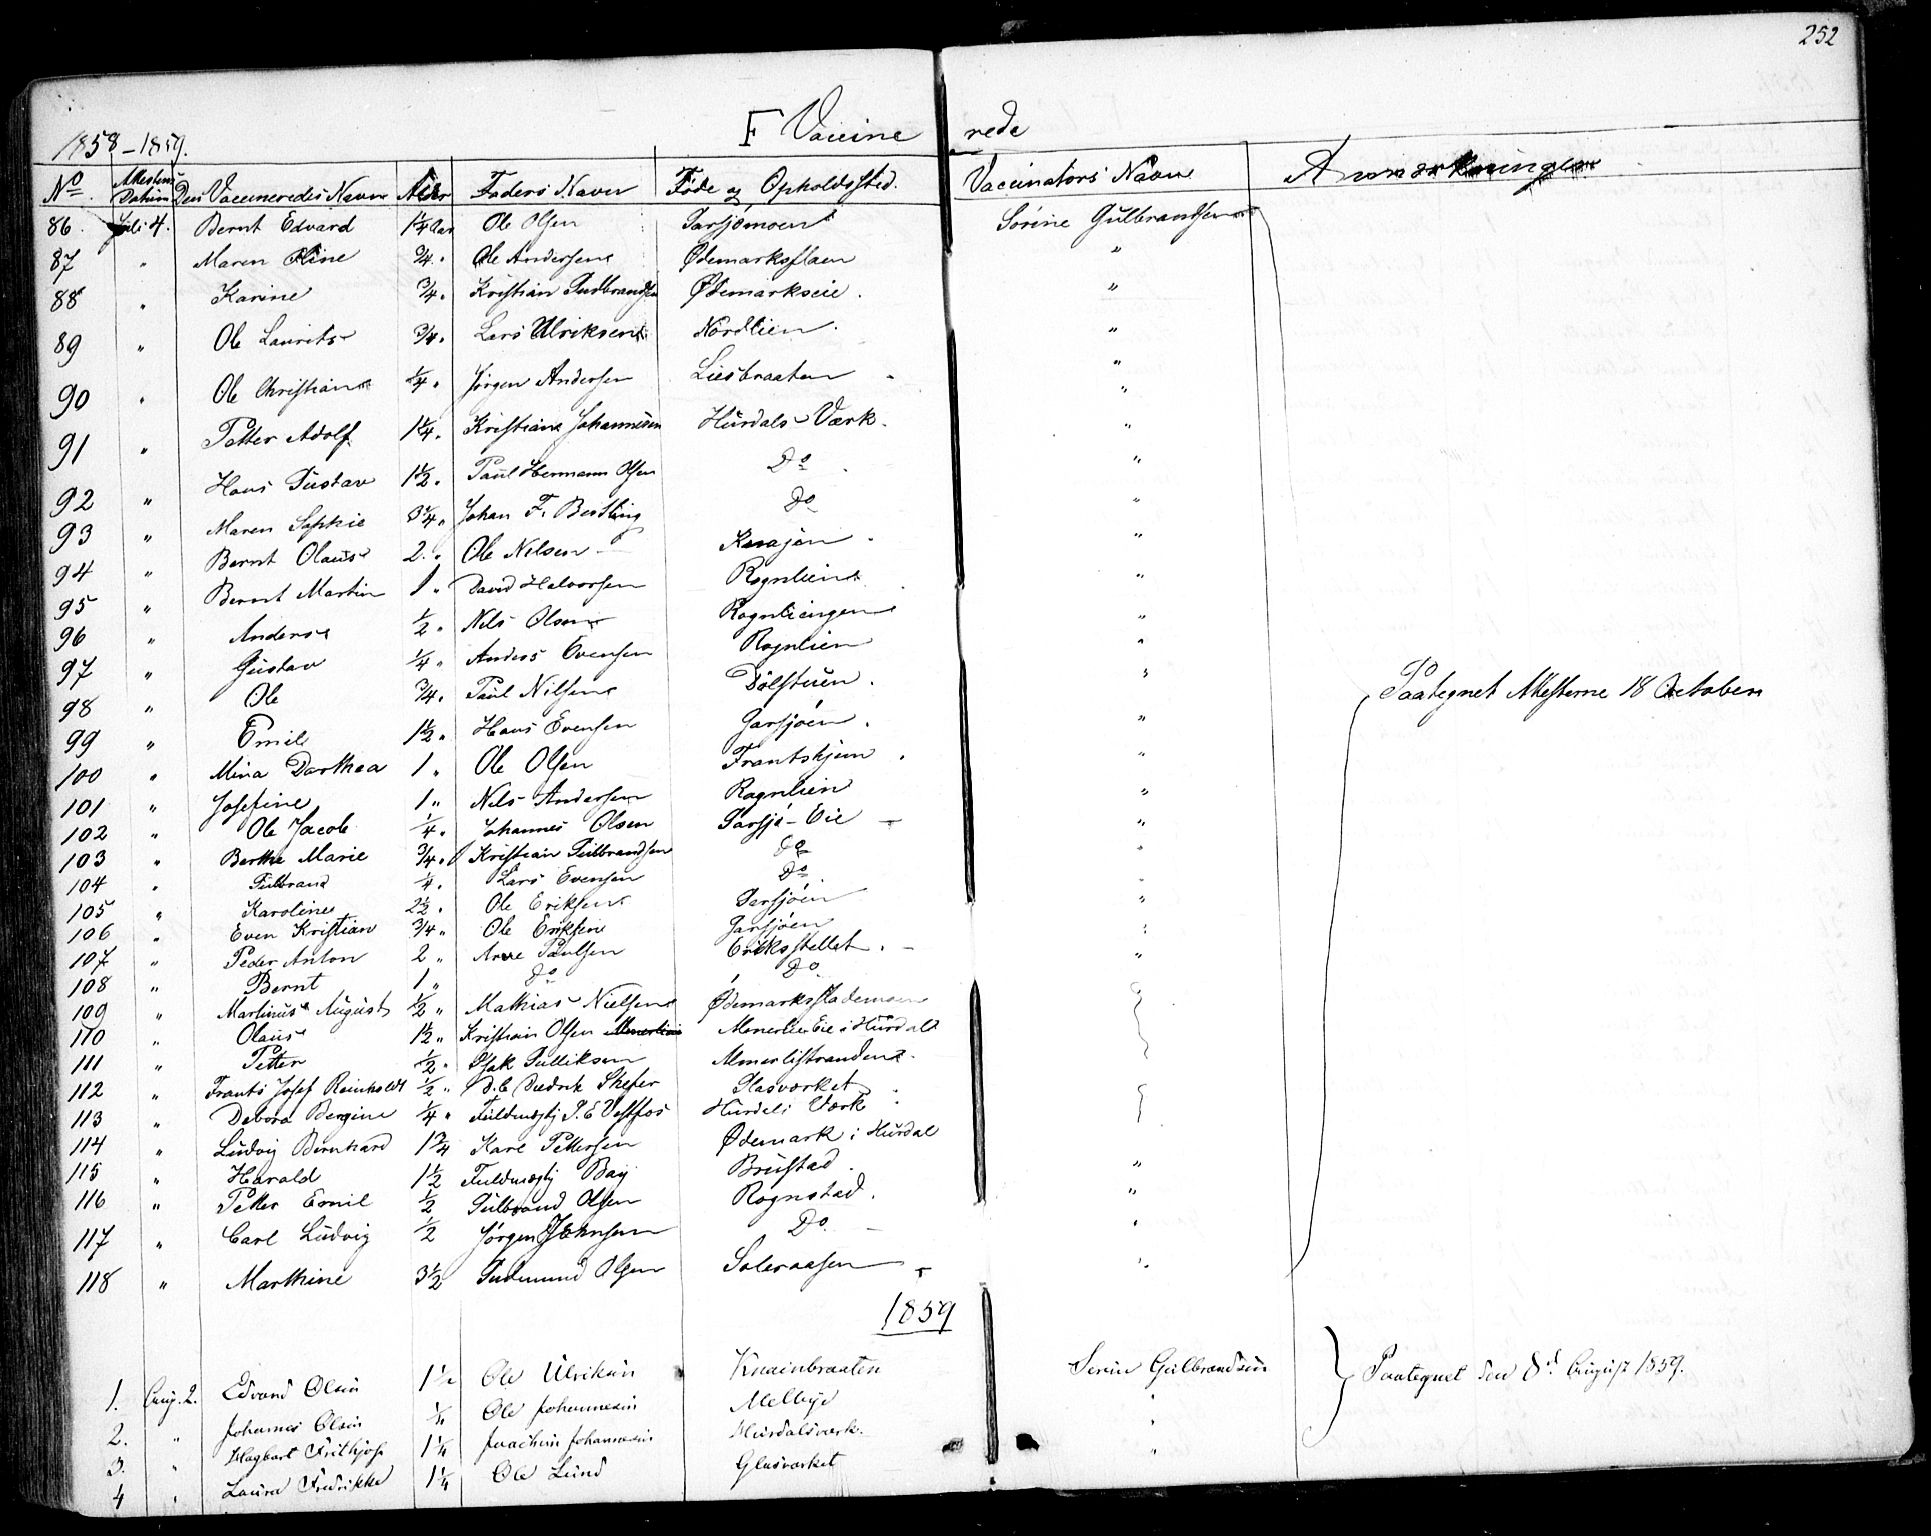 252
F Vaccine rede
1858-1859.
No Attestens Datum Den Vaccineredes Navn Alder Faders Navn Føde og Opholdssted. Vaccinators Navn Anmærkninger
86. Juli 4. Bernt Edvard 1 1/4 Aar Ole Olsen Garsjømoen Sørine Gulbrandsen
87 " Maren Oline 3/4 " Ole Andersen Ødemarksflaen "
88 " Karine 3/4 " Kristian Gudbrandsen Ødemarkseie. "
89 " Ole Laurits 3/4 " Lars Ulriksen Nordlien. "
90 " Ole Christian 1/4 " Jørgen Andersen Liesbraaten "
91 " Petter Adolf 1 1/4 " Kristian Johannesen Hurdals Værk. "
92 " Hans Gustav 1 1/2 " Paul Hermann Olsen Do "
93 " Maren Sophie 3 3/4 " Johan F. Do "
94 " Bernt Olaus 2 " Ole Nilsen "
95 " Bernt Martin 1 " David Halvorsen Rognlien "
96 " Anders 1/2 " Nils Olsen Rognliengen "
97 " Gustav 1/4 " Anders Evensen Rognlien "
98 " Ole 3/4 " Paul Nilsen Dølstuen. " Paategnet Attesterne 18 October
99 " Emil 1 1/2 " Hans Evensen Garsjøen. "
100 " Mina Dorthea 1 " Ole Olsen Frantshjem. "
101 " Josefine 1 " Nils Andersen Rognlien "
102 " Ole Jacob 1/4 " Johannes Olsen Garsjø-Eie "
103 " Berthe Marie 3/4 " Kristian Gulbrandsen Do "
104 " Gulbrand 1/4 " Lars Evensen Do "
105 " Karoline 2 1/2 " Ole Eriksen Garsjøen "
106 " Even Kristian 3/4 " Ole Eriksen Garsjøen "
107 " Peder Anton 2 " Arne Paulsen Eriksstellet. "
108 " Bernt 1 " Do Do
109 " Martinus August 1/2 " Mathias Nielsen
110 " Olaus 1 1/2 " Kristian Olsen Almerlie Eie i Hurdal
111 " Petter 1/2 " Isak Gulliksen Almerlistranden.
112 " Frants Josef Reinholdt 1/2 " Diedrik Skefer Glasværket
113 " Debora Bergine 1/4 " Fuldmægtig P. E Vestfos Hurdals Værk
114 " Ludvig Bernhard 1 3/4 Karl Pettersen Ødemark i Hurdal
115 " Harald 1 1/2 Fuldmægtig Bay Brustad. "
116 " Petter Emil 1/2 Gulbrand Olsen Rognstad. "
117 " Carl Ludvig 1/2 Jørgen Johnsen Do "
118 " Marthine 3 1/2 Gudmund Olsen Soleraasen "
1859
1. Aug. 2. Edvard Olsen 1 1/2 Ole Ulriksen Knainbraaten Serine Gulbrandsen Paategnet den 8d August 1859.
2. " Johannes Olsen 1/4 Ole Johannesen Melbye "
3. " Hagbart Frithjof 1 1/4 Joachim Johannesen Hurdalsværk. "
4 " Laura Fredrikke 1 1/4 Ole Lund Glasværket